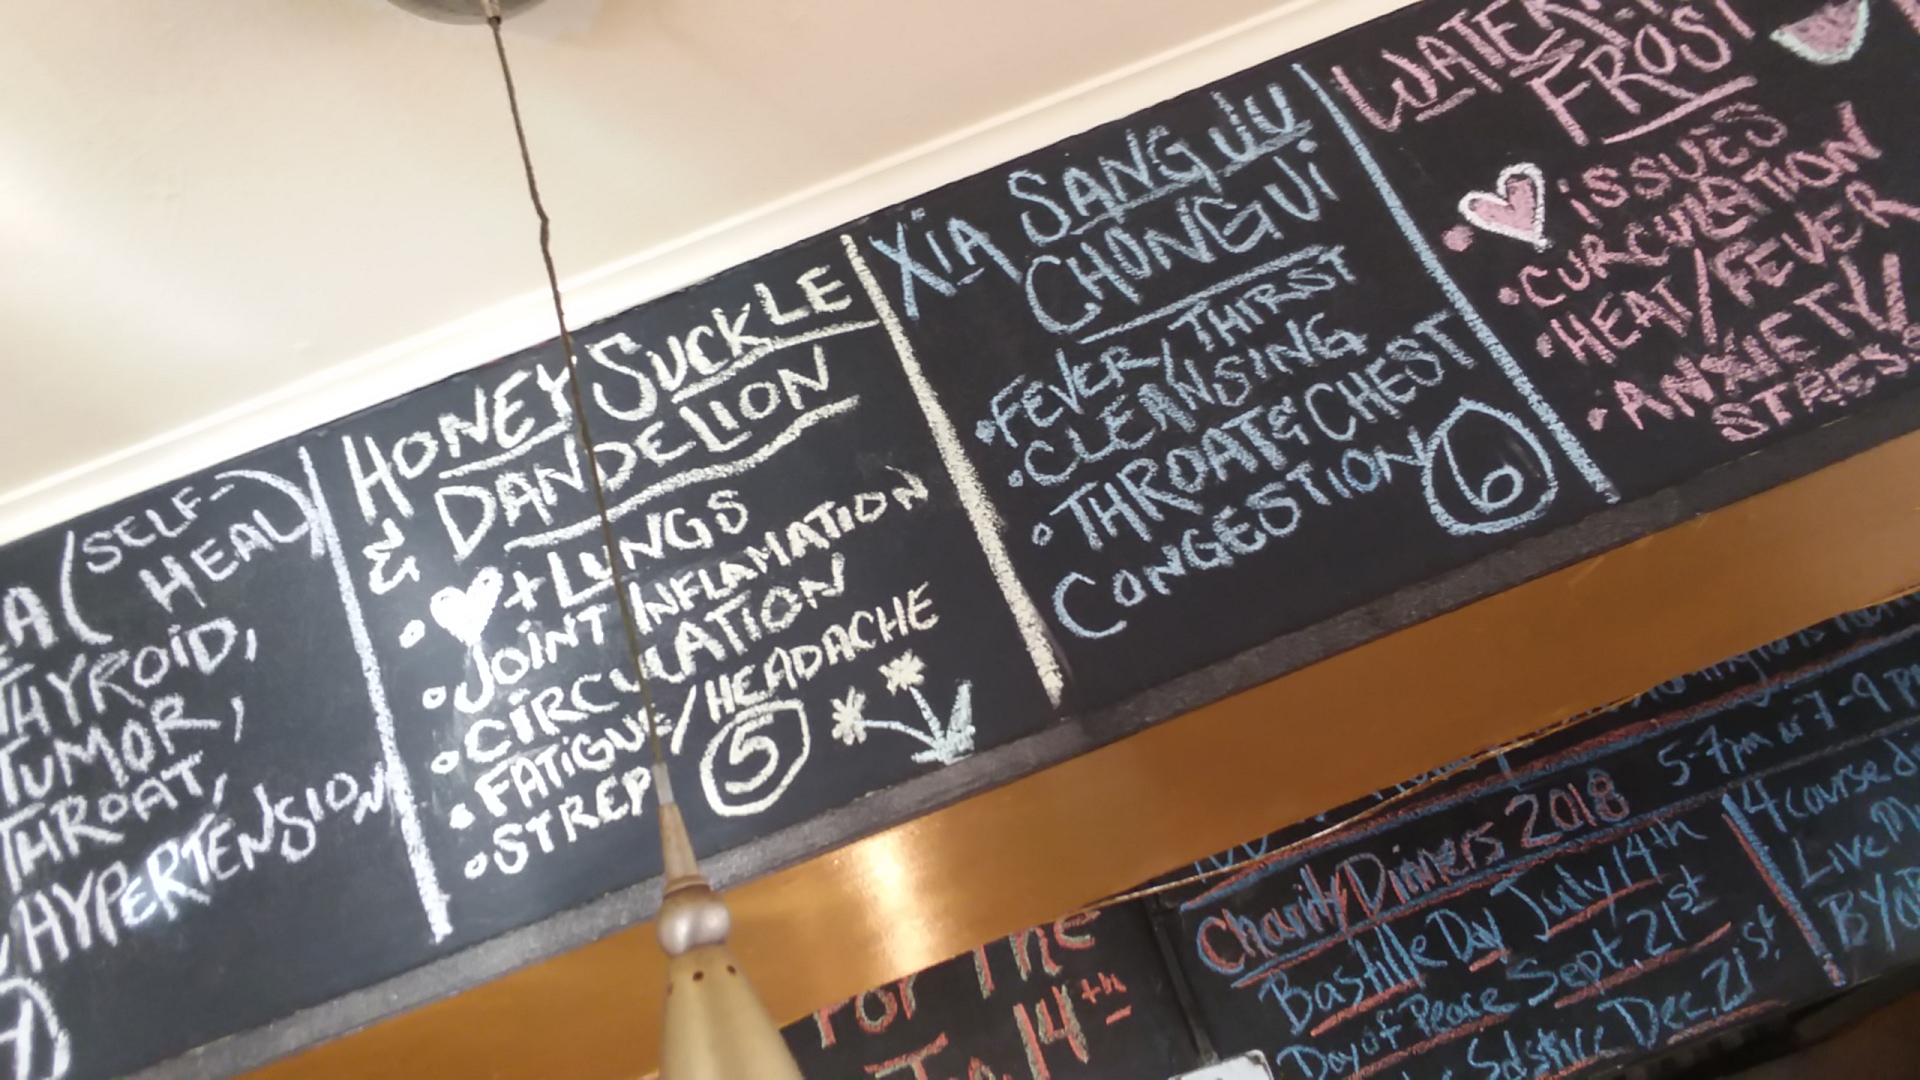 (SELF-
HEAL)
THYROID,
TUMOR,
THROAT,
HYPERTENSION
HONEY SUCKLE
& DANDELION
+ LUNGS
JOINT INFLAMATION
CIRCULATION
FATIGUE/HEADACHE
STREP
5
XIA SANG JU
CHONGUI
FEVER/THIRST
CLEANSING
THROAT & CHEST
CONGESTION
6
FROST
ISSUES
CURCULATION
HEAT/FEVER
ANXIETY/
STRESS
5-7pm or 7-9 PM
Charity Dinners 2018
Bastille Day July 14th
Day of Peace Sept. 21st
Solstice Dec. 21st
4 course
Live
For The
14th